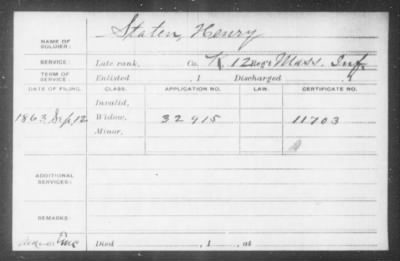 NAME OF SOLDIER: Staten, Henry
SERVICE: Late rank, Co. K, 12 Reg't Mass. Inf.
TERM OF SERVICE: Enlisted , 1 Discharged , 1
DATE OF FILING. CLASS. APPLICATION NO. LAW. CERTIFICATE NO.
Invalid,
1863 Sep. 12 Widow, 32 915 11703
Minor,
ADDITIONAL SERVICES:
REMARKS:
Died , 1 , at